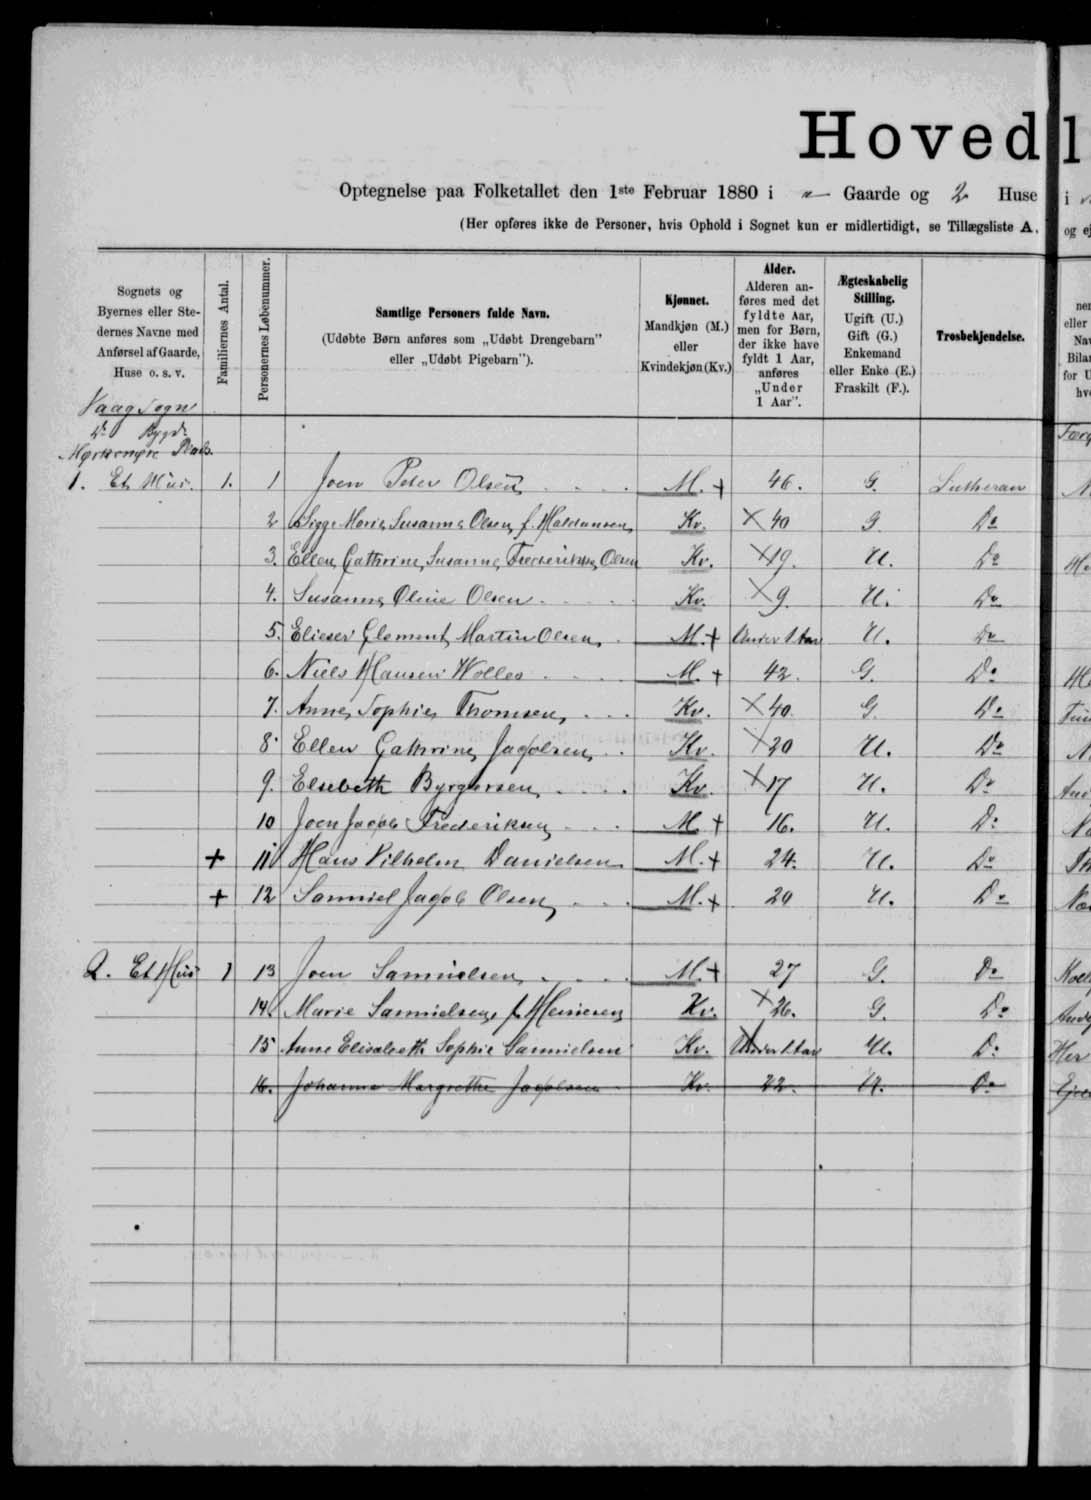 Hovedl
Optegnelse paa Folketallet den 1ste Februar 1880 i Gaarde og 2 Huse i
(Her opføres ikke de Personer, hvis Ophold i Sognet kun er midlertidigt, se Tillægsliste A, og ej
Sognets og Byernes eller Stedernes Navne med Anførsel af Gaarde, Huse o. s. v.
Familiernes Antal.
Personernes Løbenummer.
Samtlige Personers fulde Navn.
(Udøbte Børn anføres som „Udøbt Drengebarn" eller „Udøbt Pigebarn").
Kjønnet.
Mandkjøn (M.) eller Kvindekjøn (Kv.)
Alder.
Alderen anføres med det fyldte Aar, men for Børn, der ikke have fyldt 1 Aar, anføres „Under 1 Aar".
Ægteskabelig Stilling.
Ugift (U.) Gift (G.) Enkemand eller Enke (E.) Fraskilt (F.).
Trosbekjendelse.
Vaag Sogn
Do Bygd
1. Et Huus. 1. 1 Joen Peter Olsen M. + 46. G. Lutheran
2 Sigge Marie Susanne Olsen, f. Haldansen Kv. × 40 G. Do
3. Ellen Cathrine Susanne Frederikke Olsen Kv. × 19. U. Do
4. Susanne Oline Olsen Kv. × 9. U. Do
5. Elieser Clement Martin Olsen M. + Under 1 Aar U. Do
6. Niels Hansen Wolles M. + 42. G. Do
7. Anne Sophie Thomsen Kv. × 40. G. Do
8. Ellen Cathrine Jacobsen Kv. × 20 U. Do
9. Elsebeth Byrgersen Kv. × 17 U. Do
10 Joen Jacob Frederiksen M. + 16. U. Do
+ 11 Hans Vilhelm Danielsen M. + 24. U. Do
+ 12 Samuel Jacob Olsen M. + 20 U. Do
2. Et Huus 1 13 Joen Samuelsen M. + 27 G. Do
14. Marie Samuelsen, f. Heinesen Kv. × 26. G. Do
15 Anne Elisabeth Sophie Samuelsen Kv. Under 1 Aar U. Do
16. Johanne Margrethe Jacobsen Kv. 22. U. Do